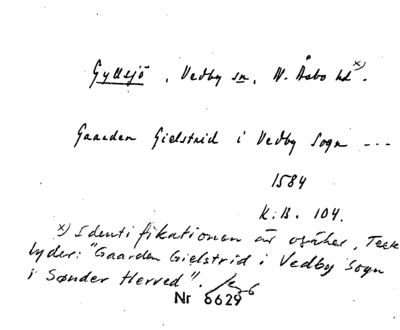 Gyllsjö, Vedby sn, N. Åsbo hd x).
Gaarden Gielstrid i Vedby Sogn ---
1584
K.B. 104.
x) Identifikationen är osäker, Texten
lyder: "Gaarden Gielstrid i Vedby Sogn
i Sønder Herred".
Nr 6629